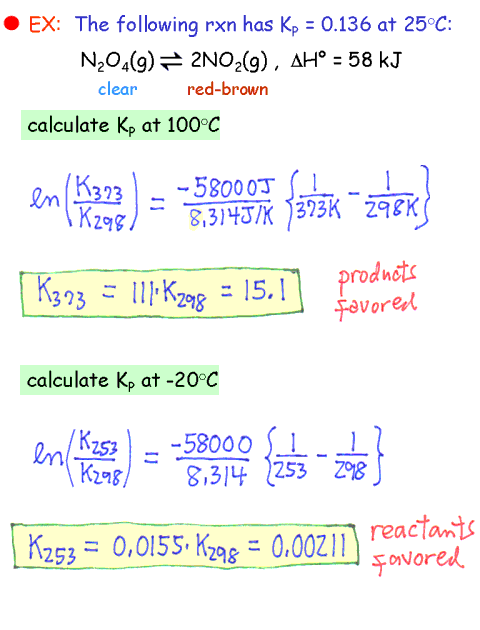 ● EX: The following rxn has Kₚ = 0.136 at 25°C:
N₂O₄(g) ⇌ 2NO₂(g) , ΔH° = 58 kJ
clear red-brown
calculate Kₚ at 100°C
ln(K₃₇₃/K₂₉₈) = -58000J/8.314J/K {1/373K - 1/298K}
K₃₇₃ = 111·K₂₉₈ = 15.1
products
favored
calculate Kₚ at -20°C
ln(K₂₅₃/K₂₉₈) = -58000/8.314 {1/253 - 1/298}
K₂₅₃ = 0.0155·K₂₉₈ = 0.00211
reactants
favored